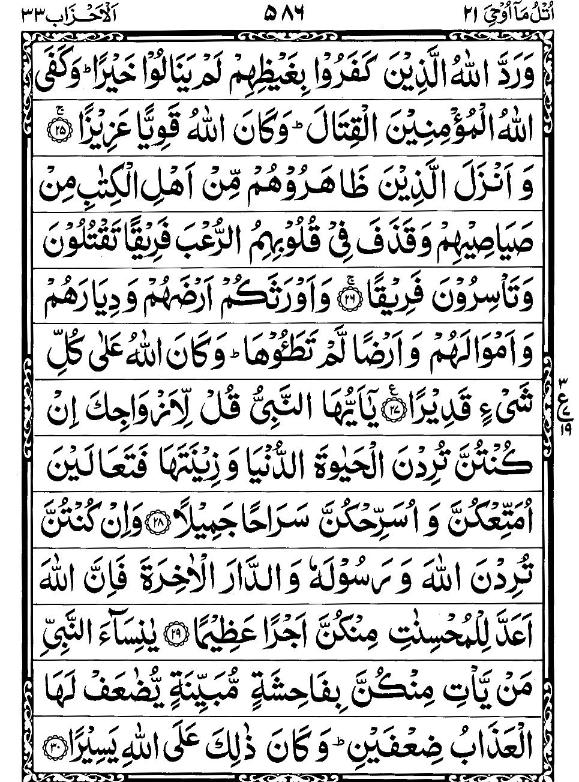 اُتْلُ مَآ اُوْحِیَ ٢١ ٥٨٦ اَلْاَحْزَاب ٣٣
وَرَدَّ اللّٰهُ الَّذِيْنَ كَفَرُوْا بِغَيْظِهِمْ لَمْ يَنَالُوْا خَيْرًا ؕ وَكَفَى
اللّٰهُ الْمُؤْمِنِيْنَ الْقِتَالَ ؕ وَكَانَ اللّٰهُ قَوِيًّا عَزِيْزًا ۚ ﴿٢٥﴾
وَ اَنْزَلَ الَّذِيْنَ ظَاهَرُوْهُمْ مِّنْ اَهْلِ الْكِتٰبِ مِنْ
صَيَاصِيْهِمْ وَقَذَفَ فِيْ قُلُوْبِهِمُ الرُّعْبَ فَرِيْقًا تَقْتُلُوْنَ
وَتَاْسِرُوْنَ فَرِيْقًا ۚ ﴿٢٦﴾ وَاَوْرَثَكُمْ اَرْضَهُمْ وَدِيَارَهُمْ
وَ اَمْوَالَهُمْ وَاَرْضًا لَّمْ تَطَـُٔوْهَا ؕ وَكَانَ اللّٰهُ عَلٰى كُلِّ
شَيْءٍ قَدِيْرًا ﴿٢٧﴾ ع يٰۤاَيُّهَا النَّبِيُّ قُلْ لِّاَزْوَاجِكَ اِنْ
٣ ع ١٩
كُنْتُنَّ تُرِدْنَ الْحَيٰوةَ الدُّنْيَا وَزِيْنَتَهَا فَتَعَالَيْنَ
اُمَتِّعْكُنَّ وَ اُسَرِّحْكُنَّ سَرَاحًا جَمِيْلًا ﴿٢٨﴾ وَاِنْ كُنْتُنَّ
تُرِدْنَ اللّٰهَ وَ رَسُوْلَهٗ وَالدَّارَ الْاٰخِرَةَ فَاِنَّ اللّٰهَ
اَعَدَّ لِلْمُحْسِنٰتِ مِنْكُنَّ اَجْرًا عَظِيْمًا ﴿٢٩﴾ يٰنِسَآءَ النَّبِيِّ
مَنْ يَّاْتِ مِنْكُنَّ بِفَاحِشَةٍ مُّبَيِّنَةٍ يُّضٰعَفْ لَهَا
الْعَذَابُ ضِعْفَيْنِ ؕ وَكَانَ ذٰلِكَ عَلَى اللّٰهِ يَسِيْرًا ﴿٣٠﴾